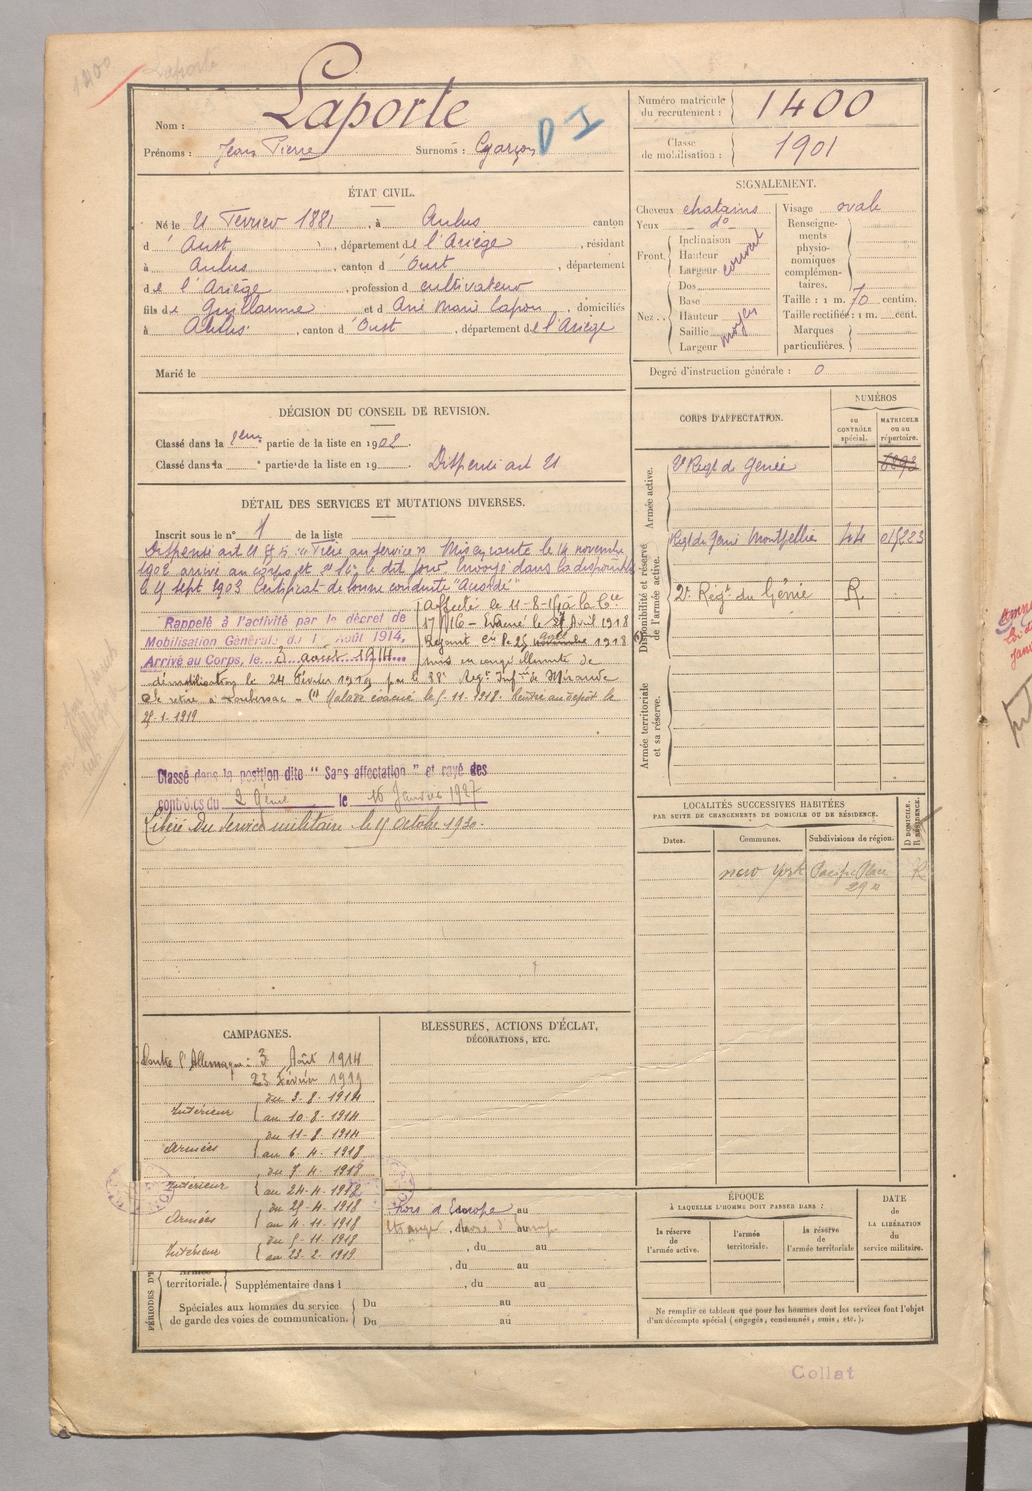 1400 Laporte
Nom : Laporte
Prénoms : Jean Pierre Surnoms : Garçon
D I
Numéro matricule du recrutement : 1400
Classe de mobilisation : 1901
ÉTAT CIVIL.
Né le 21 Fevrier 1881, à Aulus canton
d'Oust, département de l'Ariège, résidant
à Aulus, canton d'Oust, département
de l'Ariège, profession de cultivateur
fils de Guillaume et d domiciliés
à Aulus, canton d'Oust, département de l'Ariège
Marié le
SIGNALEMENT.
Cheveux chatains
Yeux d°
Front. Inclinaison
Hauteur
Largeur couvert
Nez. Dos
Base
Hauteur
Saillie moyen
Largeur
Visage ovale
Renseignements physionomiques complémentaires.
Taille : 1 m. 70 centim.
Taille rectifiée : 1 m. cent.
Marques particulières.
Degré d'instruction générale : 0
DÉCISION DU CONSEIL DE REVISION.
Classé dans la 2eme partie de la liste en 1902.
Classé dans la e partie de la liste en 19 Dispensé art 21
DÉTAIL DES SERVICES ET MUTATIONS DIVERSES.
Inscrit sous le n° 1 de la liste
Dispensé art 21 "Frère au service". Mis en route le 14 novembre
1902 arrivé au corps et le dit jour. Envoyé dans la disponibilité
le sept 1903 Certificat de bonne conduite "Accordé"
Rappelé à l'activité par le décret de
Mobilisation Générale du 1 Août 1914,
Arrivé au Corps, le 3 août 1914
Affecté le 11-8-14 à la Cie
17/16 - Evacué le Avril 1918
Rejoint le 25 1918
mis en congé illimité de
démobilisation le 24 Février 1919 par le 88e Regt Infrie de Mirande
Se retire à Loubersac - (1) Malade évacué le 5-11-1918. Rentré au dépôt le
-1-1919
Classé dans la position dite "Sans affectation" et rayé des
contrôles du 2 Génie le 15 Janvier 1927
Libéré du service militaire le Octobre 1930.
CORPS D'AFFECTATION.
NUMÉROS
au CONTRÔLE spécial.
MATRICULE ou au répertoire.
Armée active.
2e Regt de Génie
Disponibilité et réserve de l'armée active.
Regt de Génie Montpellier 44
2e Régt du Génie R.
Armée territoriale et sa réserve.
LOCALITÉS SUCCESSIVES HABITÉES
PAR SUITE DE CHANGEMENTS DE DOMICILE OU DE RÉSIDENCE.
D DOMICILE. R RÉSIDENCE.
Dates. Communes. Subdivisions de région.
New York Pacific Place R
29
CAMPAGNES.
Contre l'Allemagne : 3 Août 1914
23 Février 1919
Intérieur du 3-8-1914
au 10-8-1914
Armées du 11-8-1914
au 6-4-1918
Intérieur du 7-4-1918
au 24-4-1918
Armées du 25-4-1918
au 4-11-1918
Intérieur du 5-11-1918
au 23-2-1919
BLESSURES, ACTIONS D'ÉCLAT,
DÉCORATIONS, ETC.
hors d'Europe au
étranger
, du au
, du au
territoriale. Supplémentaire dans l , du au
Spéciales aux hommes du service
de garde des voies de communication. Du au
Du au
ÉPOQUE
À LAQUELLE L'HOMME DOIT PASSER DANS :
la réserve de l'armée active.
l'armée territoriale.
la réserve de l'armée territoriale
DATE
de
LA LIBÉRATION
du
service militaire.
Ne remplir ce tableau que pour les hommes dont les services font l'objet
d'un décompte spécial (engagés, condamnés, omis, etc.).
Collat